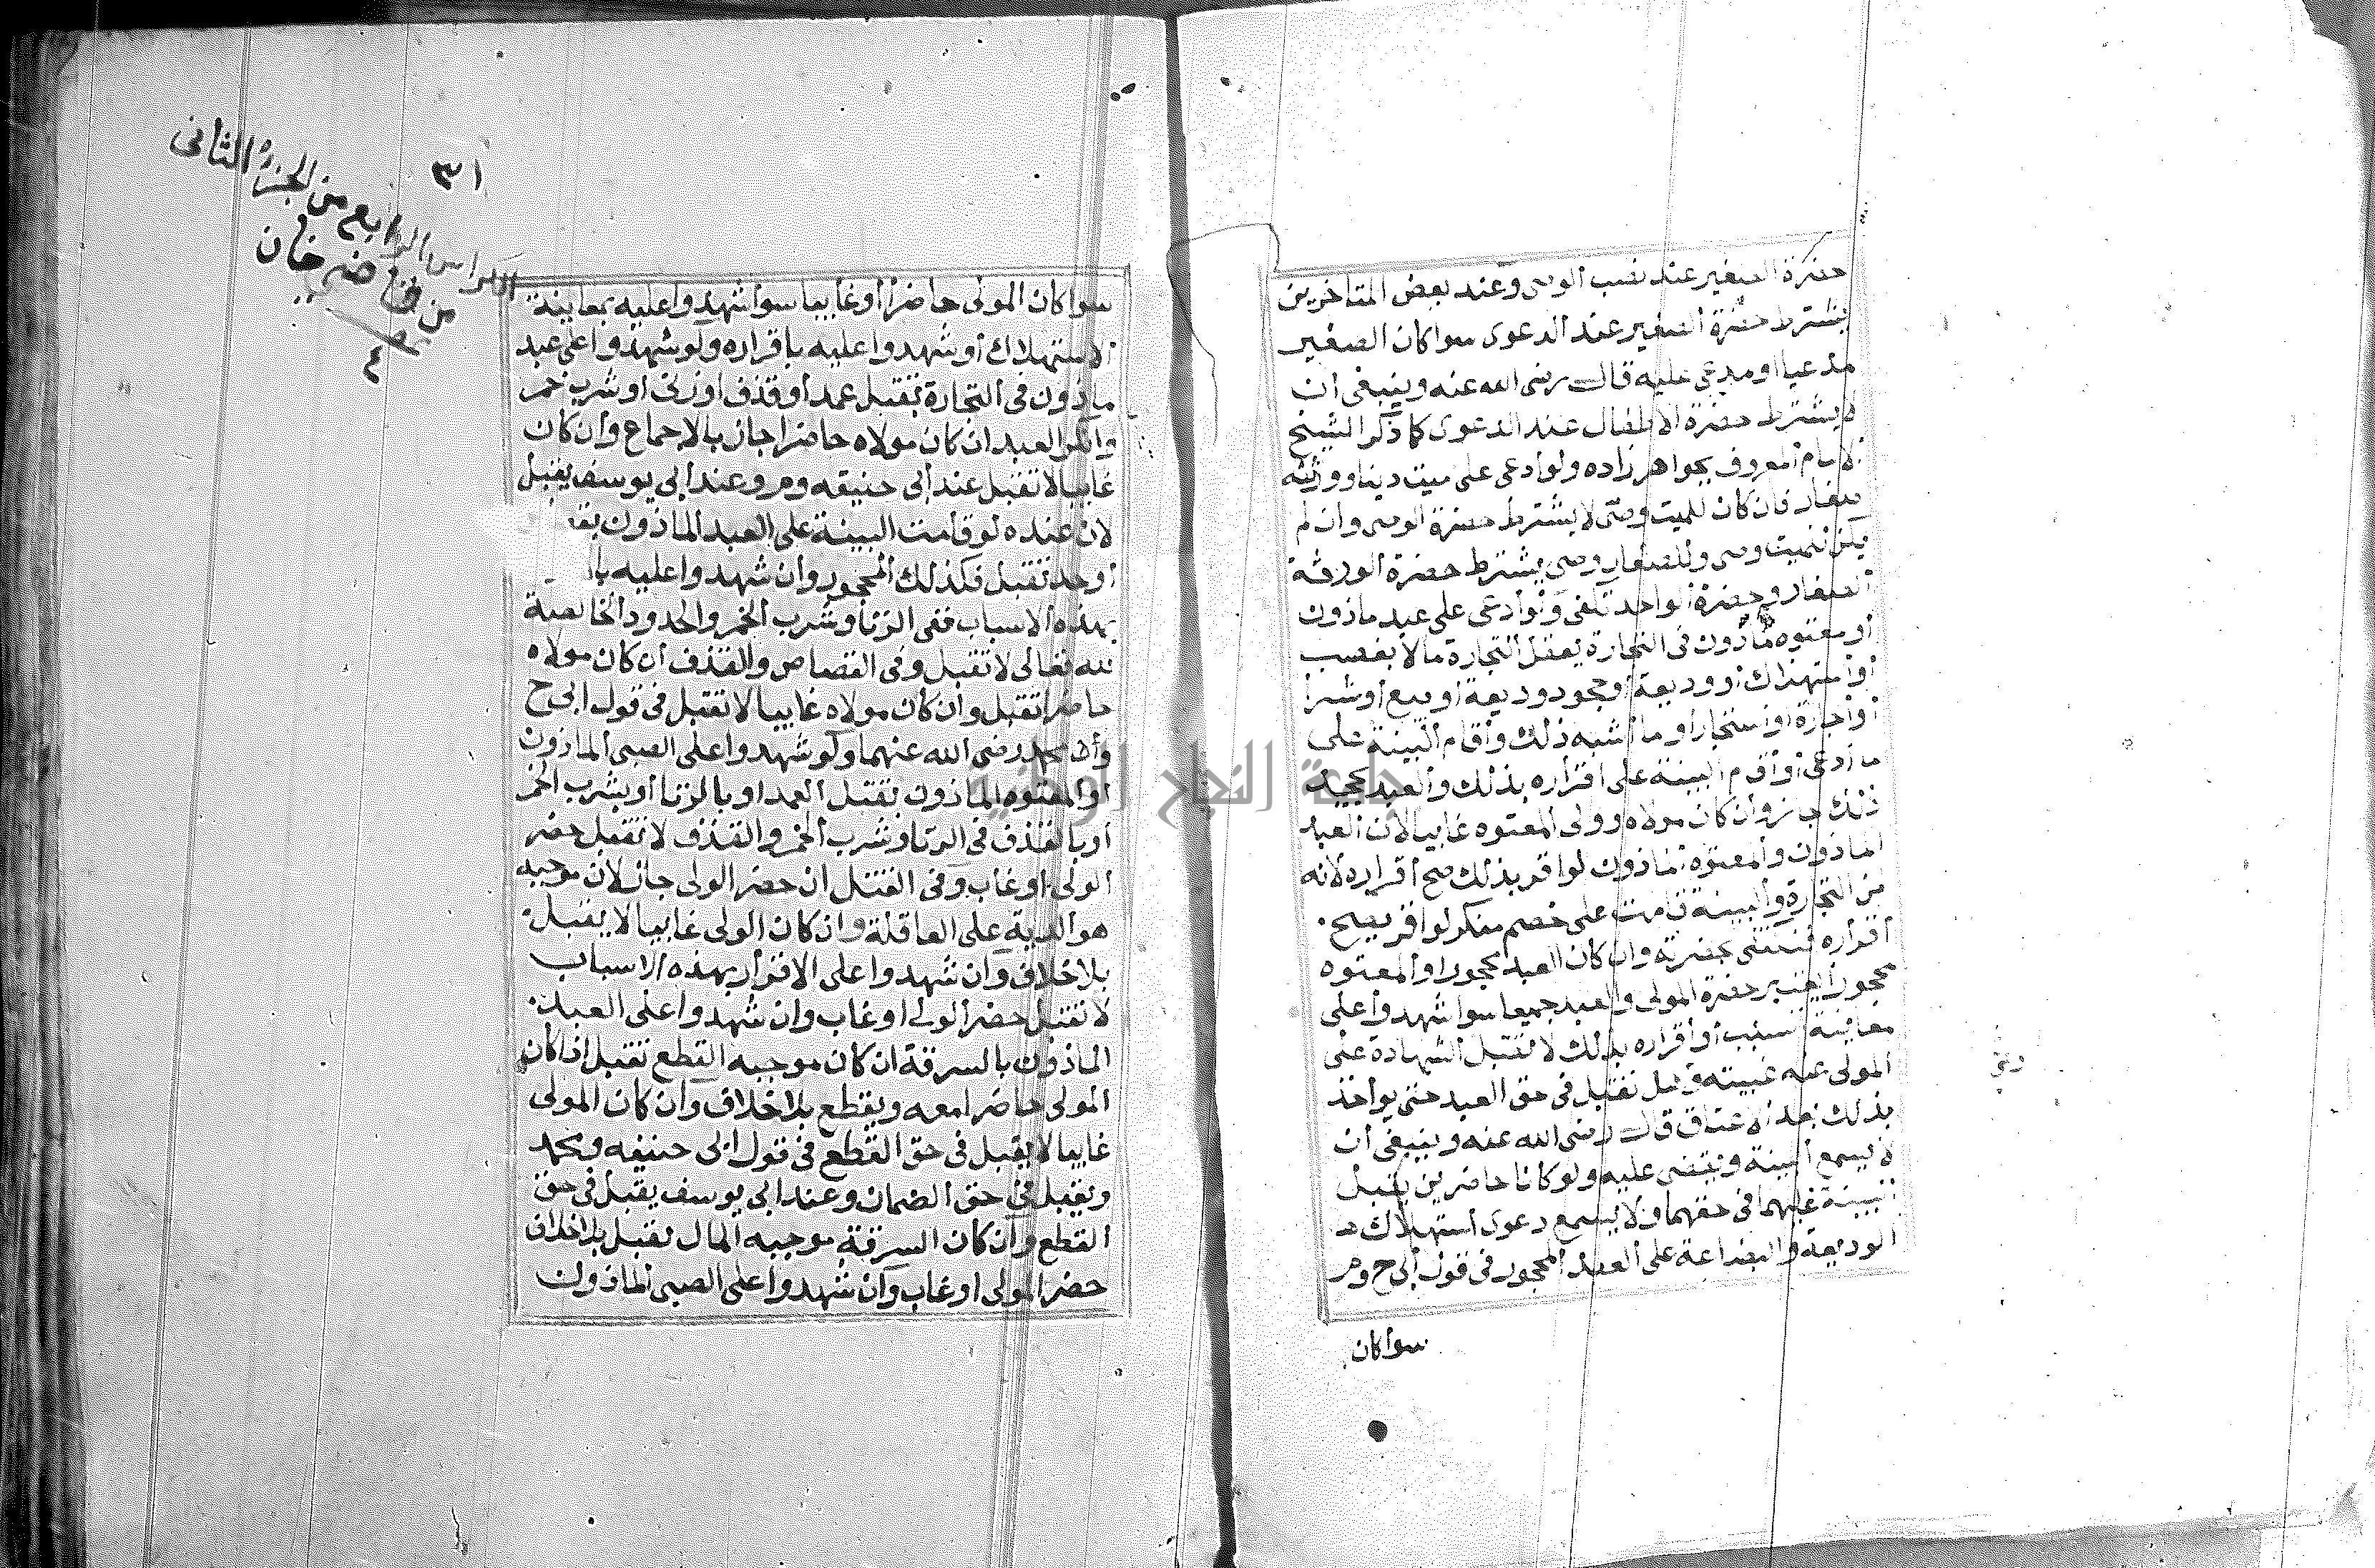 حضرة الصغير عند نصب الوصى وعند بعض المتاخرين
يشترط حضرة الصغير عند الدعوى سوا كان الصغير
مدعيا او مدعى عليه قال رضى الله عنه وينبغى ان
لا يشترط حضرة الاطفال عند الدعوى كما ذكر الشيخ
الامام المعروف بخواهر زاده ولو ادعى على ميت دينا وورثته
صغار فان كان للميت وصى لا يشترط حضرة الوصى وان لم
يكن للميت وصى وللصغار وصى يشترط حضرة الورثة
الصغار وحضرة الواحد تكفى ولو ادعى على عبد ماذون
او معتوه ماذون فى التجارة يعقل التجارة مالا بغصب
او استهلاك او وديعة او جحود وديعة او بيع او شرا
او اجارة او استئجار او ما اشبه ذلك واقام البينة على
ما ادعى او اقام البينة على اقراره بذلك والعبد يجحد
ذلك جاز وان كان مولاه وولى المعتوه غايبا لان العبد
الماذون والمعتوه الماذون لو اقر بذلك صح اقراره لانه
من التجارة والبينة قامت على خصم منكر لو اقر يصح
اقراره فيقضى بحضرته وان كان العبد محجورا والمعتوه
محجورا يعتبر حضرة المولى والعبد جميعا سوا شهدوا على
معاينة السبب او اقراره بذلك لا تقبل الشهادة على
المولى عند غيبته وهل تقبل فى حق العبد حتى يواخذ
بذلك بعد الاعتاق قال رضى الله عنه وينبغى ان
لا يسمع البينة ويقضى عليه ولو كانا حاضرين يقبل
البينة عليهما فى حقهما ولا يسمع دعوى استهلاك
الوديعة والبضاعة على العبد المحجور فى قول ابى ح وم
سوا كان
٣١
الكراس الرابع من الجزء الثانى
من قاضى خان
٤
سوا كان المولى حاضرا أو غايبا سوا شهدوا عليه بمعاينة
الاستهلاك أو شهدوا عليه باقراره ولو شهدوا على عبد
ماذون فى التجارة بقتل عمد أو قذف او زنى او شرب خمر
وانكر العبد ان كان مولاه حاضرا جاز بالاجماع وان كان
غايبا لا تقبل عند ابى حنيفه وم وعند ابى يوسف يقبل
لان عنده لو قامت البينة على العبد الماذون
أو حد تقبل فكذلك المحجور وان شهدوا عليه
بهذه الاسباب ففى الزنا وشرب الخمر والحدود الخالصة
لله تعالى لا تقبل وفى القصاص والقذف ان كان مولاه
حاضرا تقبل وان كان مولاه غايبا لا تقبل فى قول ابى ح
محمد رضى الله عنهما ولو شهدوا على الصبى الماذون
او المعتوه الماذون بقتل العمد او بالزنا أو بشرب الخمر
أو بالقذف فى الزنا وشرب الخمر والقذف لا تقبل حضر
الولى او غاب وفى القتل ان حضر الولى جاز لان موجبه
هو الدية على العاقلة وان كان الولى غايبا لا يقبل
بلا خلاف وان شهدوا على الاقرار بهذه الاسباب
لا تقبل حضر الولى او غاب وان شهدوا على العبد
الماذون بالسرقة ان كان موجبه القطع تقبل اذا كان
المولى حاضرا معه ويقطع بلا خلاف وان كان المولى
غايبا لا يقبل فى حق القطع فى قول ابى حنيفه ومحمد
ويقبل فى حق الضمان وعند ابى يوسف يقبل فى حق
القطع وان كان السرقة موجبه المال تقبل بلا خلاف
حضر المولى او غاب وان شهدوا على الصبى الماذون
جامعة النجاح الوطنية